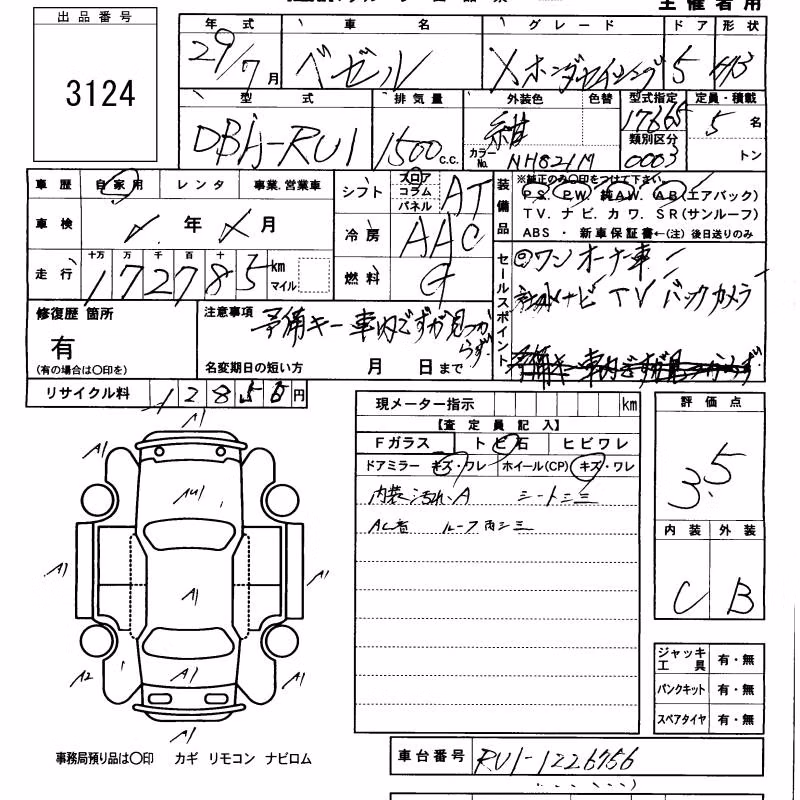 主催者用
出品番号
3124
年式 車名 グレード ドア 形状
29/7月 ベゼル Xホンダセンシング 5 HB
型式 排気量 外装色 色替 型式指定 定員・積載
DBA-RU1 1500c.c. 紺 17665 5名
カラーNo. NH821M 類別区分 0003 トン
車歴 自家用 レンタ 事業、営業車
シフト フロア コラム パネル AT
装備品
※純正のみ○印をつけて下さい。
P.S. P.W. 純AW. AB(エアバック)
TV. ナビ. カワ. SR(サンルーフ)
ABS ・ 新車保証書←(注) 後日送りのみ
車検 年 月
冷房 AAC
走行 十万 万 千 百 十
172785 km マイル
燃料 G
セールスポイント
◎ワンオーナー車
純ナビ TV バックカメラ
修復歴 箇所
有
(有の場合は○印を)
注意事項
予備キー車内ですが見つからず
名変期日の短い方 月 日まで
リサイクル料 12850円
現メーター指示 km
【査定員記入】
Fガラス トビ石 ヒビワレ
ドアミラー キズ・ワレ ホイール(CP) キズ・ワレ
内装汚れ・A シートシミ
AC蓋 ルーフ内シミ
評価点
3.5
内装 外装
C B
A1
A1
A1
AU1
A1
A1
A1
A2
A1
A1
A1
ジャッキ工具 有・無
パンクキット 有・無
スペアタイヤ 有・無
事務局預り品は○印 カギ リモコン ナビロム
車台番号 RU1-1226756